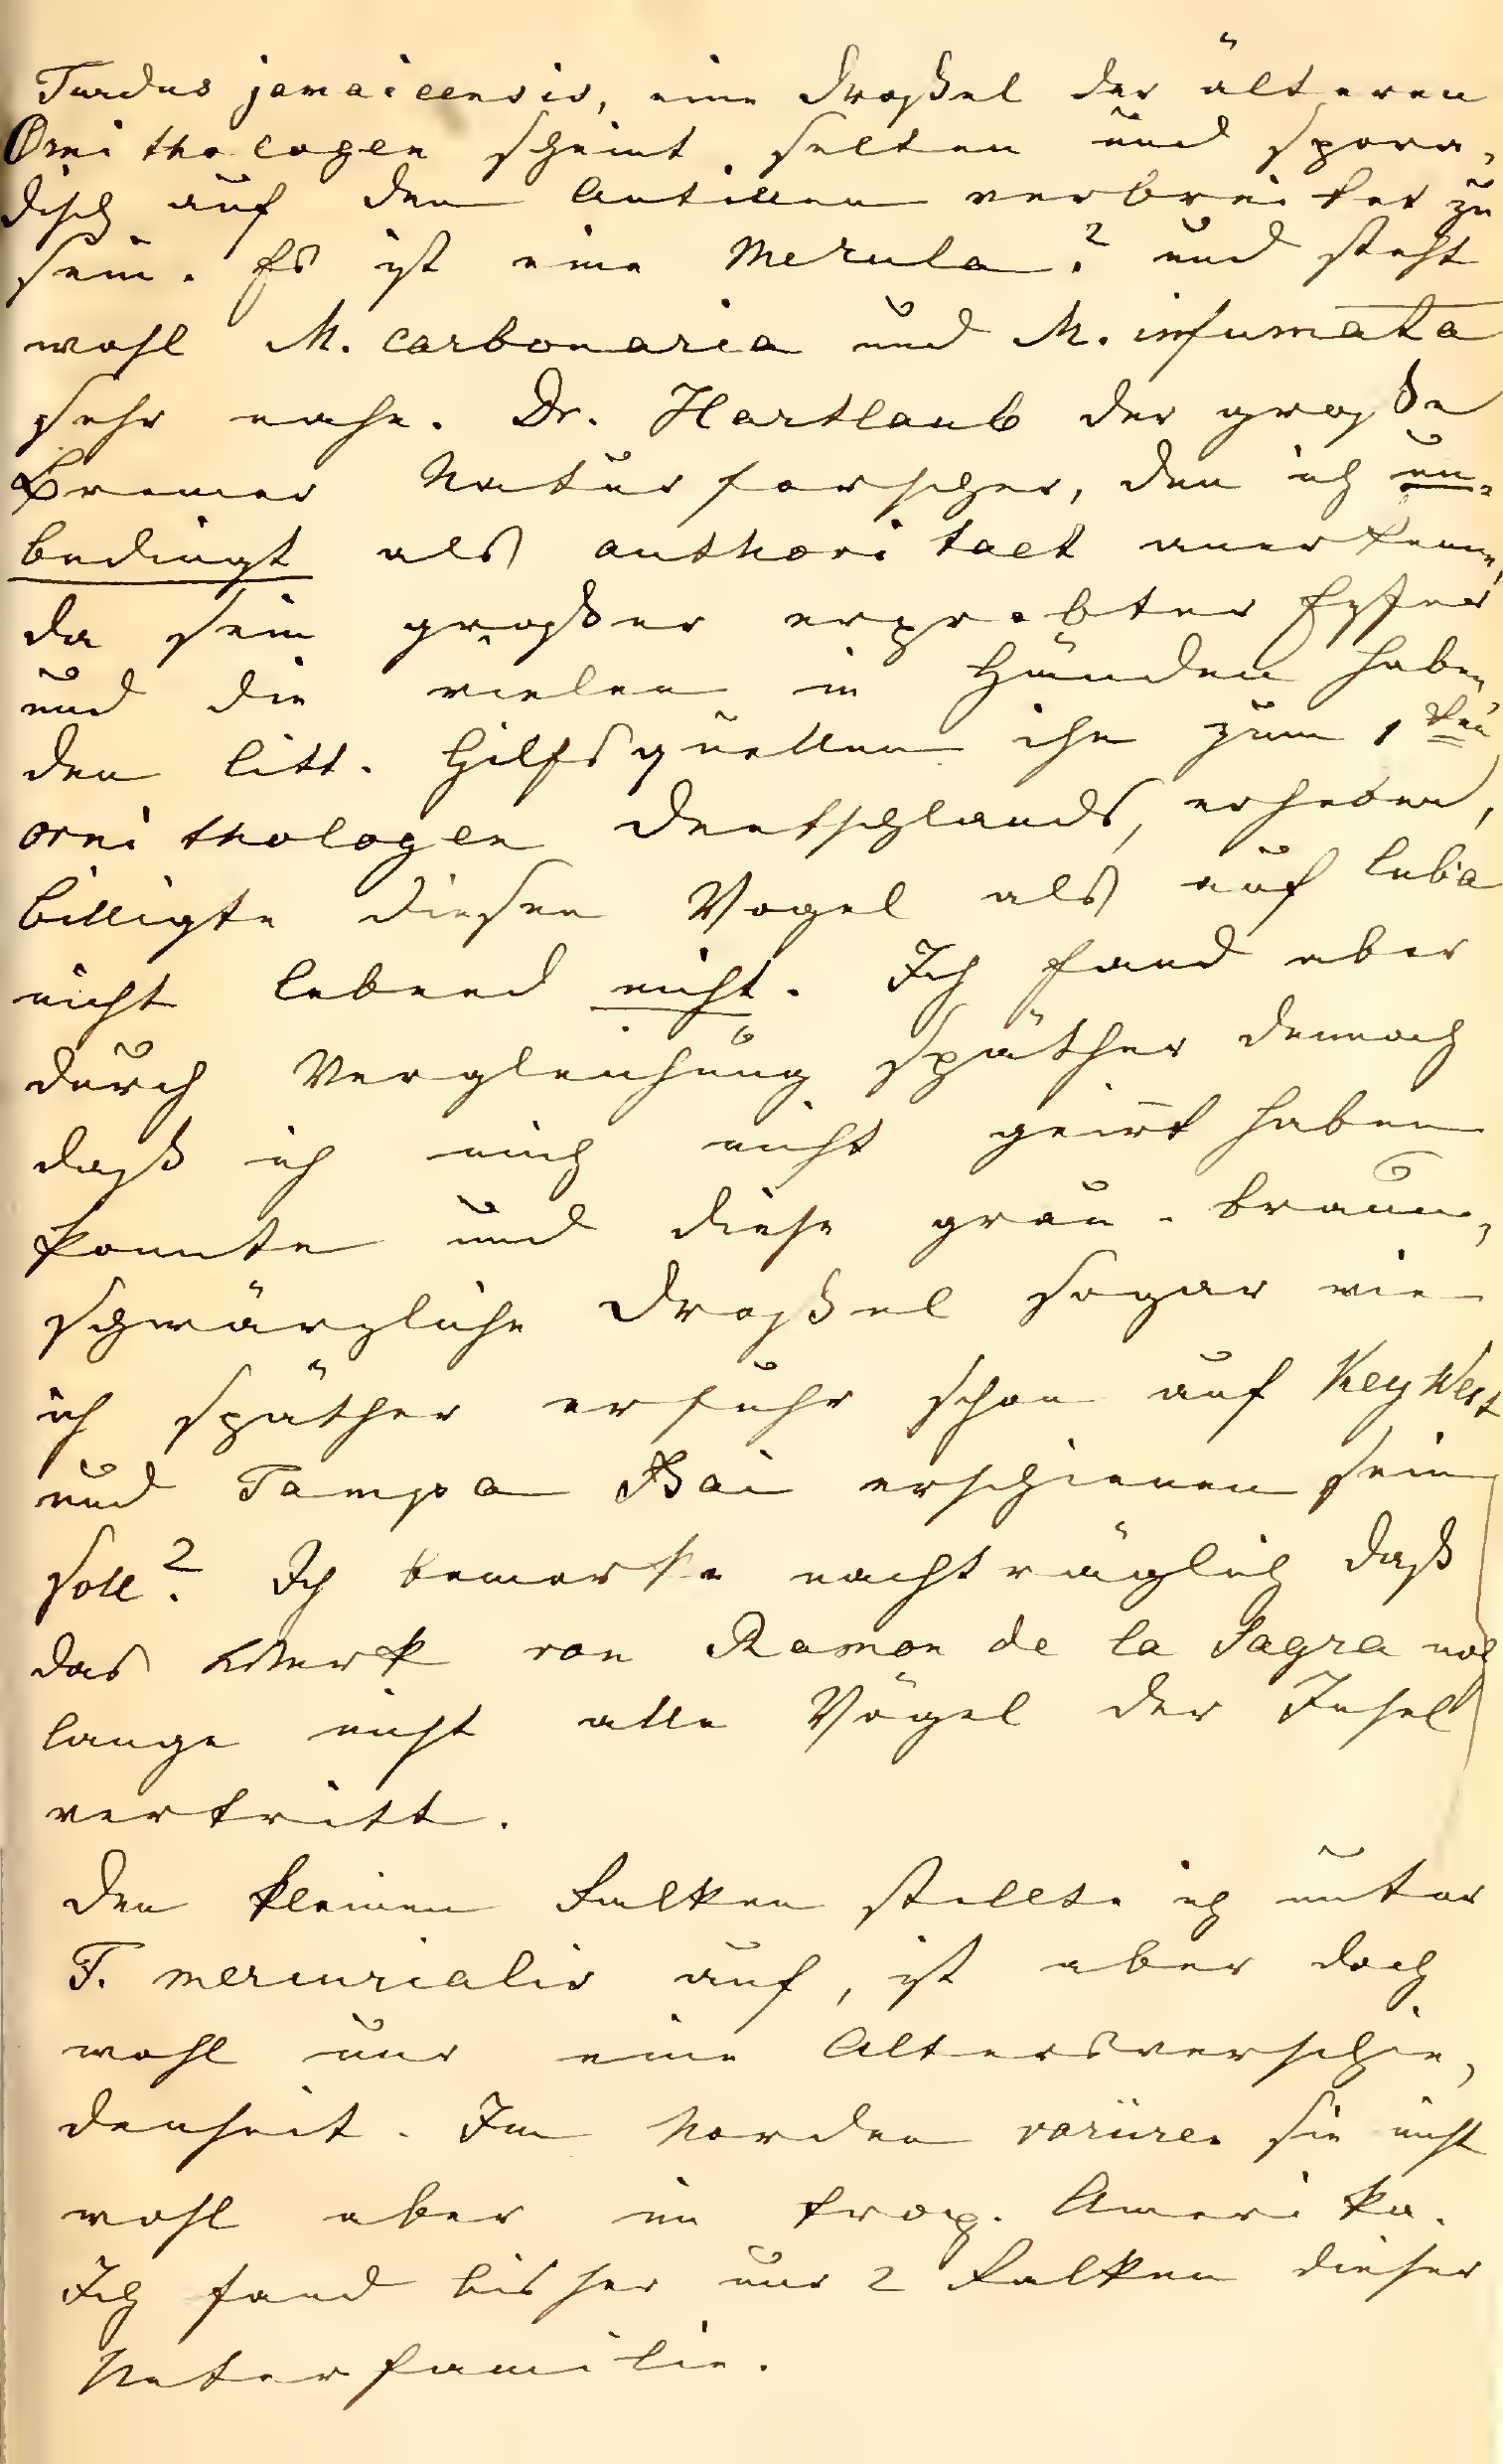 Turdus jamaicensis, eine Droßel der älteren
Ornithologen scheint selten und spora-
disch auf den Antillen verbreitet zu
sein. Es ist eine Merula? und steht
wohl M. carbonaria und M. infumata
sehr nahe. Dr. Hartlaub der große
Bremer Naturforscher, den ich un-
bedingt als authoritaet anerkenne,
da sein großer erprobter Eyfer
und die vielen in Händen haben
den litt. Hilfsquellen ihn zum 1 ten
ornithologen Deutschlands, erheben,
billigte diesen Vogel als auf Cuba
nicht lebend nicht. Ich fand aber
durch Vergleichung späther dennoch
daß ich mich nicht geirrt haben
konnte und diese grau-braun-
schwärzliche Droßel sogar wie
ich späther erfuhr schon auf Key West
und Tampa Bai erschienen sein
soll? Ich bemerke nachträglich daß
das Werk von Ramon de la Sagra noch
lange nicht alle Vögel der Insel
vertritt.
Den kleinen Falken stellte ich unter
F. mercurialis auf, ist aber doch
wohl nur eine Altersverschie-
denheit. Im Norden variiren sie nicht
wohl aber im trop. Amerika.
Ich fand bisher nur 2 Falken dieser
Unterfamilie.